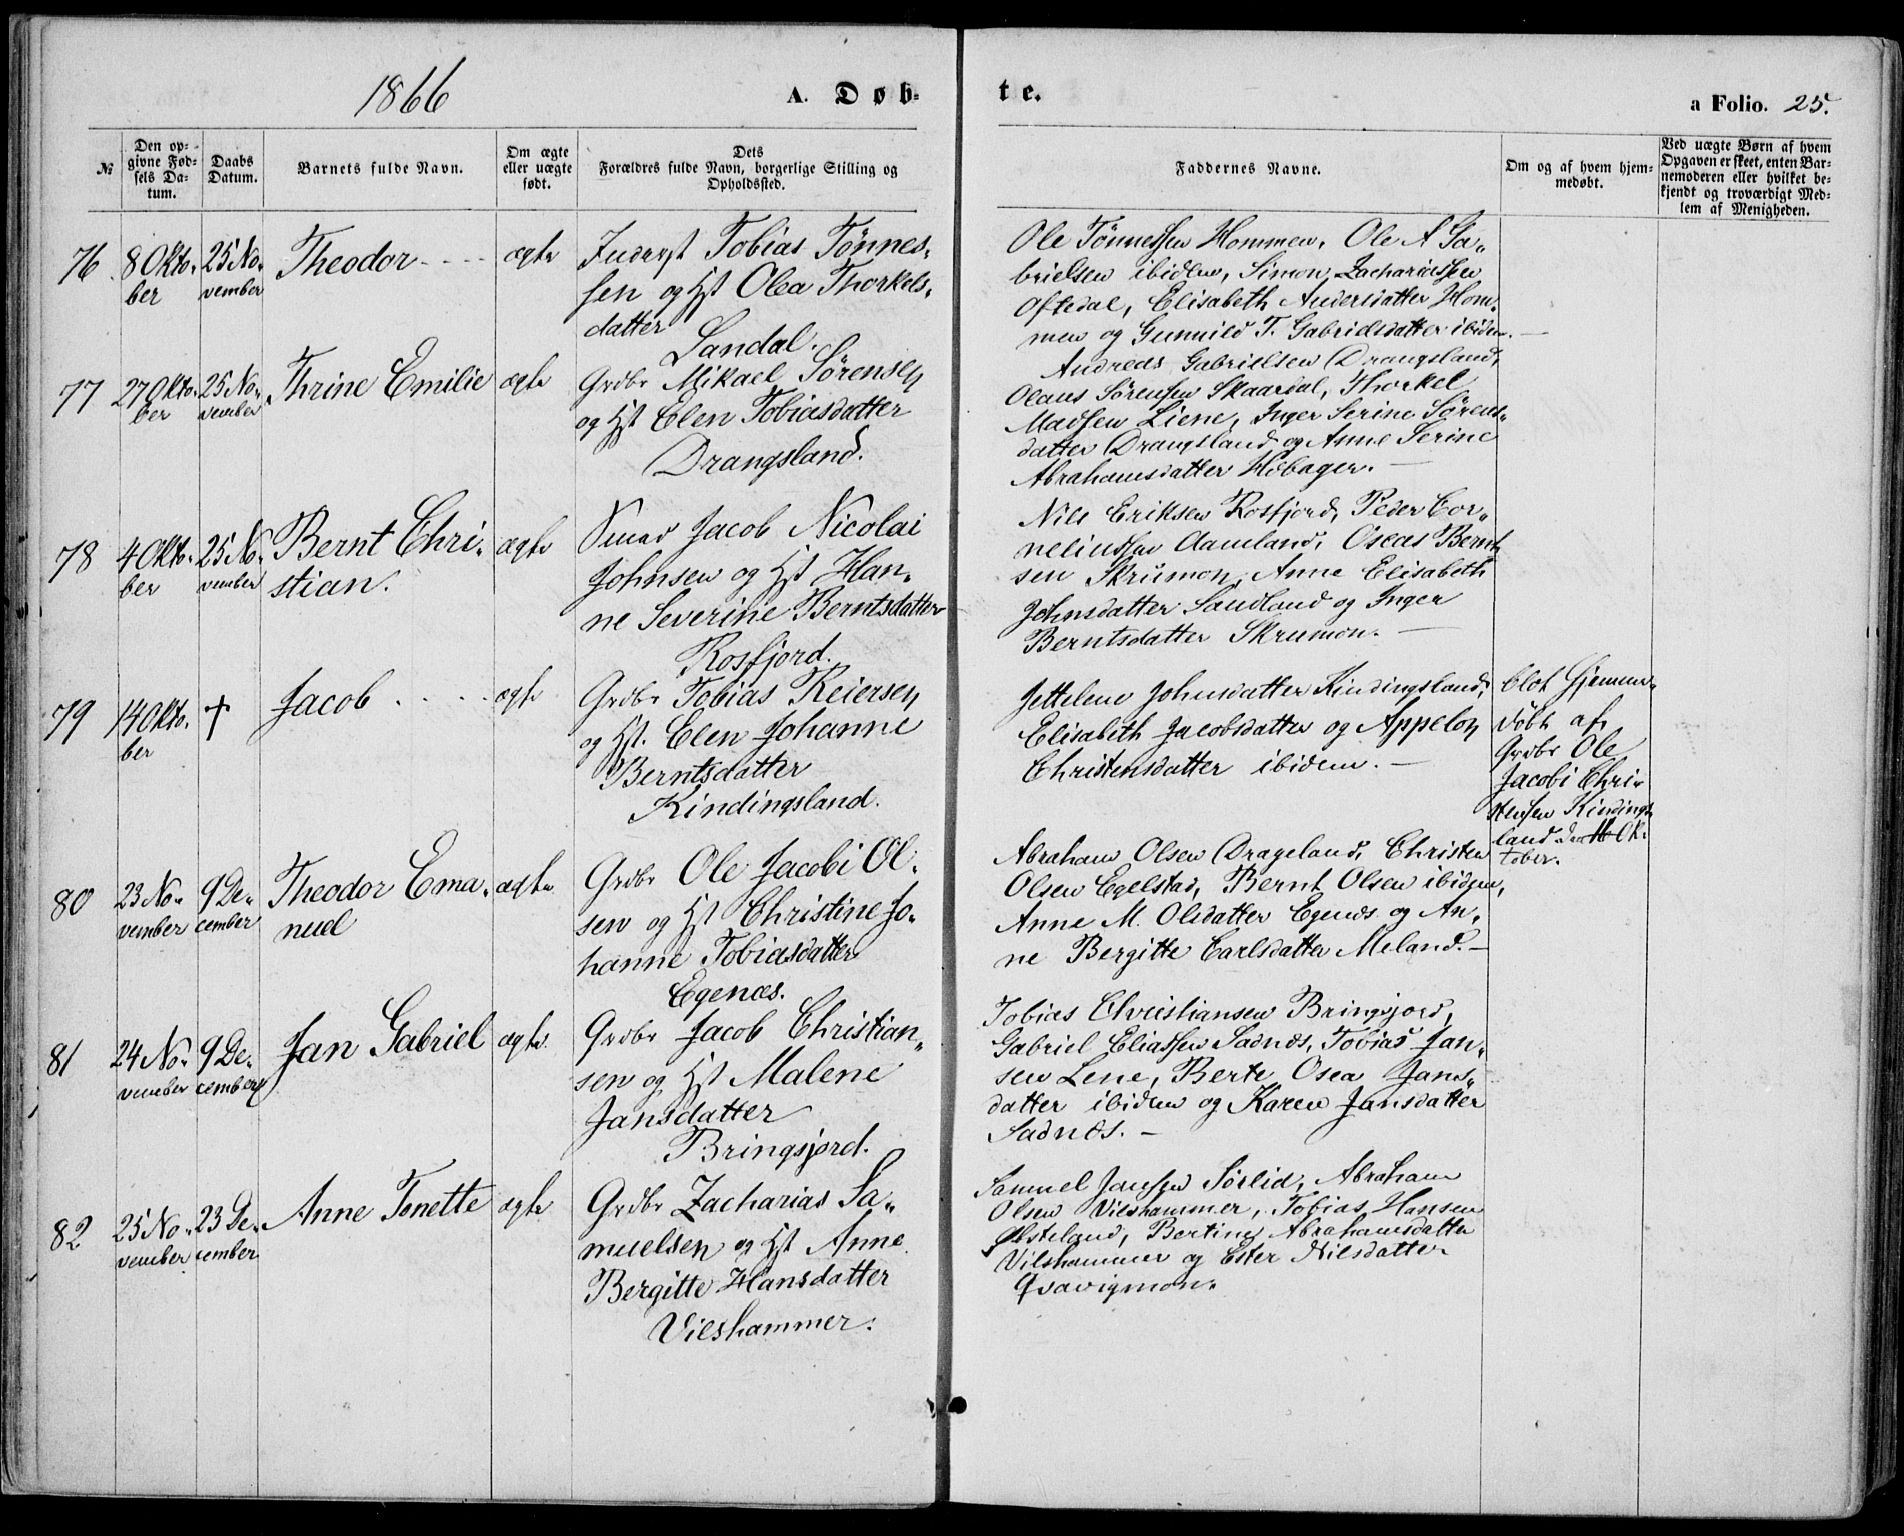 1866
A. Døb-
te.
a Folio. 25.
№
Den op-
givne Fød-
sels Da-
tum.
Daabs
Datum.
Barnets fulde Navn.
Om ægte
eller uægte
født.
Dets
Forældres fulde Navn, borgerlige Stilling og
Opholdssted.
Faddernes Navne.
Om og af hvem hjem-
medøbt.
Ved uægte Børn af hvem
Opgaven er skeet, enten Bar-
nemoderen eller hvilket be-
kjendt og troværdigt Med-
lem af Menigheden.
76
8 Okto-
ber
25 No-
vember
Theodor
ægte
Inderst Tobias Tønnes-
sen og Hst Olea Thorkels-
datter
Landal.
Ole Tønnessen Hommen, Ole A Ga-
brielsen ibidem, Simon Zachariassen
Oftedal, Elisabeth Andersdatter Hom-
men og Gunnild T. Gabrielsdatter ibidem. —
77
27 Okto-
ber
25 No-
vember
Thrine Emilie
ægte
Grdbr Mikael Sørensen
og Hst Elen Tobiasdatter
Drangsland.
Andreas Gabrielsen Drangsland,
Olaus Sørensen Skaardal, Thorkel
Madsen Liene, Inger Serine Sørens-
datter Drangsland og Anne Serine
Abrahamsdatter Høbager. —
78
4 Okto-
ber
25 No-
vember
Bernt Chri-
stian.
ægte
Smed Jacob Nicolai
Johnsen og Hst Han-
ne Severine Berntsdatter
Rosfjord.
Nils Eriksen Rosfjord, Peder Cor-
neliussen Aamland, Oseas Bernt-
sen Skrumon, Anne Elisabeth
Johnsdatter Sandland og Inger
Berntsdatter Skrumon. —
79
14 Okto-
ber
†
Jacob
ægte
Grdbr Tobias Reiersen
og Hst. Elen Johanne
Berntsdatter
Kindingsland.
Jettelene Johnsdatter Kindingsland,
Elisabeth Jacobsdatter og Appelon
Christensdatter ibidem. —
blot Hjemme-
døbt af
Grdbr Ole
Jacobi Chri-
stensen Kindings-
land den Ok-
tober.
80
23 No-
vember
9 De-
cember
Theodor Ema-
nuel
ægte
Grdbr Ole Jacobi Ol-
sen og Hst Christine Jo-
hanne Tobiasdatter
Egenæs.
Abraham Olsen Drageland, Christen
Olsen Egelstad, Bernt Olsen ibidem,
Anne M. Olsdatter Egenæs og An-
ne Bergitte Carlsdatter Meland. —
81
24 No-
vember
9 De-
cember
Jan Gabriel
ægte
Grdbr Jacob Christian-
sen og Hst Malene
Jansdatter
Bringsjord.
Tobias Christiansen Bringsjord,
Gabriel Eliassen Sadnæs, Tobias Jan-
sen Lene, Berte Osea Jans-
datter ibidem og Karen Jansdatter
Sadnæs. —
82
25 No-
vember
23 De-
cember
Anne Tonette
ægte
Grdbr Zacharias Sa-
muelsen og Hst Anne
Bergitte Hansdatter
Vieshammer.
Samuel Jansen Sørlid, Abraham
Olsen Vieshammer, Tobias Hansen
Østeland, Bertine Abrahamsdatter
Vilshammer og Ester Nilsdatter
Qvavigmon.